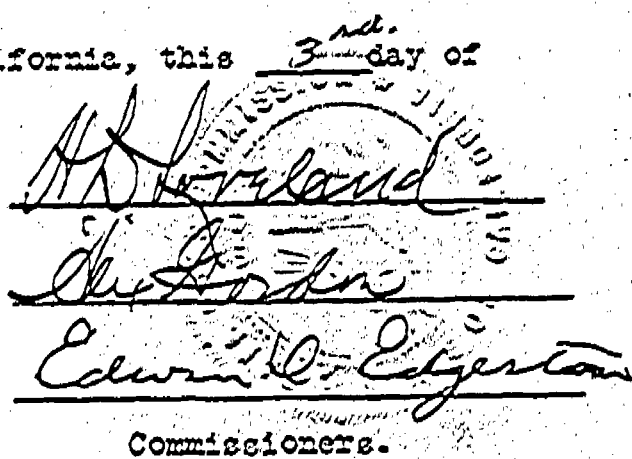 ifornia, this 3rd. day of
H D Loveland
Alex Gordon
Edwin O. Edgerton
Commissioners.